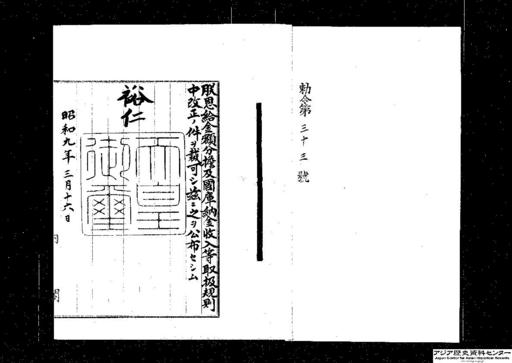 勅令第三十三號
朕恩給金額分擔及國庫納金收入等取扱規則
中改正ノ件ヲ裁可シ茲ニ之ヲ公布セシム
裕仁
天皇
御璽
昭和九年三月十六日
内閣
アジア歴史資料センター
Japan Center for Asian Historical Records